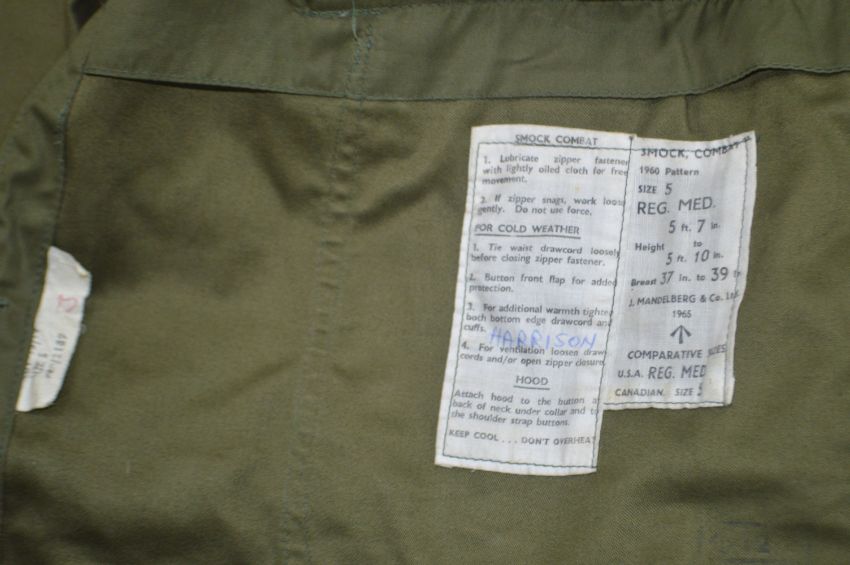 SMOCK COMBAT
1. Lubricate zipper fastener
with lightly oiled cloth for free
movement.
2. If zipper snags, work loose
gently. Do not use force.
FOR COLD WEATHER
1. Tie waist drawcord loosely
before closing zipper fastener.
2. Button front flap for added
protection.
3. For additional warmth tighten
both bottom edge drawcord and
cuffs.
HARRISON
4. For ventilation loosen draw
cords and/or open zipper closure.
HOOD
Attach hood to the button a
back of neck under collar and to
the shoulder strap buttons.
KEEP COOL . . . DON'T OVERHEAT
SMOCK, COMBAT
1960 Pattern
SIZE 5
REG. MED.
5 ft. 7 in.
Height to
5 ft. 10 in.
Breast 37 in. to 39 in.
J. MANDELBERG & Co. Ltd.
1965
COMPARATIVE SIZES
U.S.A. REG. MED
CANADIAN. SIZE 5